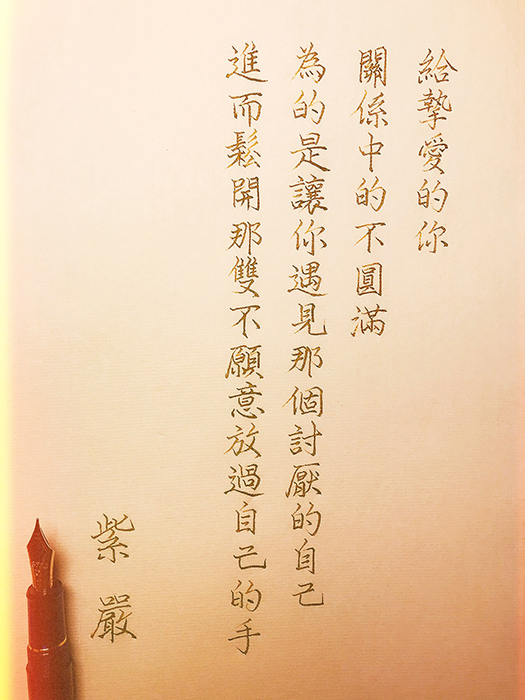 給摯愛的你
關係中的不圓滿
為的是讓你遇見那個討厭的自己
進而鬆開那雙不願意放過自己的手
紫嚴